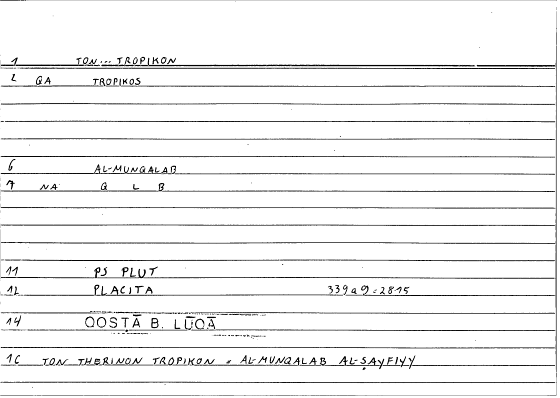 1 TON... TROPIKON
2 QA TROPIKOS
6 AL-MUNQALAB
7 NA Q L B
11 PS PLUT
12 PLACITA 339a9 = 28.15
14 QOSṬĀ B. LŪQĀ
16 TON THERINON TROPIKON = AL-MUNQALAB AL-ṢAYFIYY